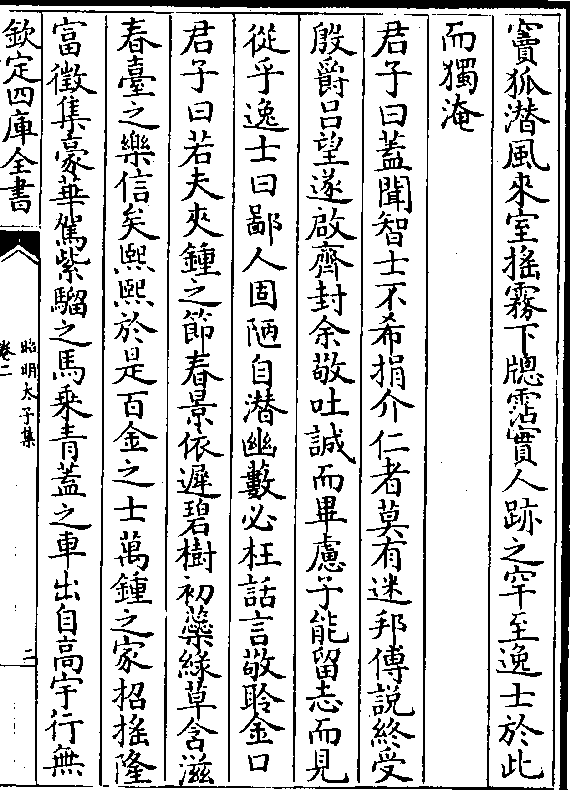 竇狐潜風來室搖霧下牕霑實人跡之罕至逸士於此
而獨淹
君子曰蓋聞智士不希捐介仁者莫有迷邦傅説終受
殷爵吕望遂啟齊封余敬吐誠而畢慮子能留志而見
從乎逸士曰鄙人固陋自潜幽藪必枉話言敬聆金口
君子曰若夫夾鍾之節春景依遲碧樹初蘂緑草含滋
春臺之樂信矣熙熙於是百金之士萬鍾之家招搖隆
富徵集豪華駕紫騮之馬乗青蓋之車出自高宇行無
欽定四庫全書
昭明太子集
卷二
二